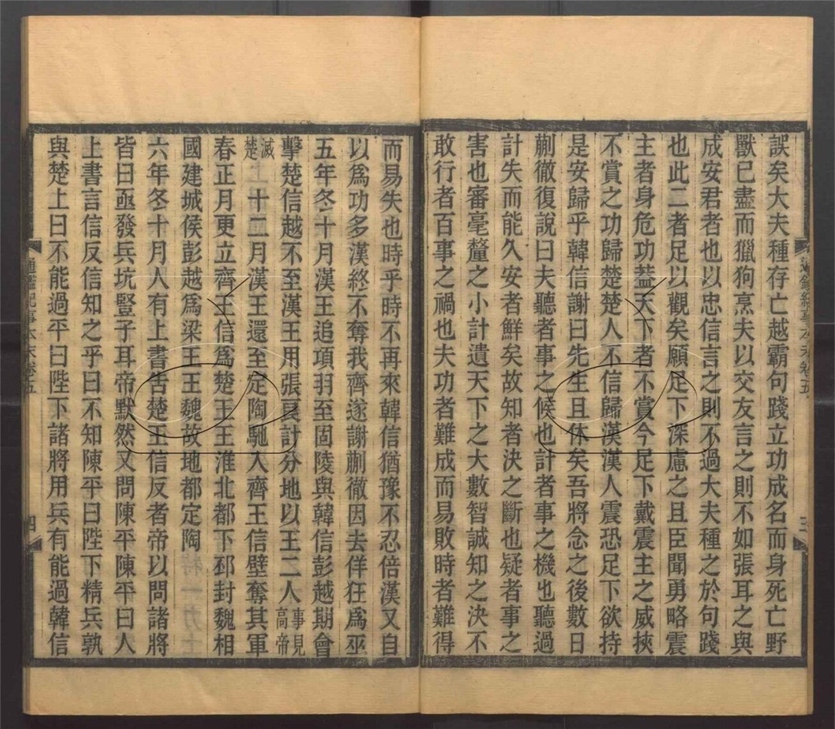 誤矣大夫種存亡越霸句踐立功成名而身死亡野
獸已盡而獵狗烹夫以交友言之則不如張耳之與
成安君者也以忠信言之則不過大夫種之於句踐
也此二者足以觀矣願足下深慮之且臣聞勇略震
主者身危功蓋天下者不賞今足下戴震主之威挾
不賞之功歸楚楚人不信歸漢漢人震恐足下欲持
是安歸乎韓信謝曰先生且休矣吾將念之後數日
蒯徹復說曰夫聽者事之候也計者事之機也聽過
計失而能久安者鮮矣故知者決之斷也疑者事之
害也審毫釐之小計遺天下之大數智誠知之決不
敢行者百事之禍也夫功者難成而易敗時者難得
通鑑紀事本末卷五
三
而易失也時乎時不再來韓信猶豫不忍倍漢又自
以爲功多漢終不奪我齊遂謝蒯徹因去佯狂爲巫
五年冬十月漢王追項羽至固陵與韓信彭越期會
擊楚信越不至漢王用張良計分地以王二人事見高帝
滅楚 十二月漢王還至定陶馳入齊王信壁奪其軍
春正月更立齊王信爲楚王王淮北都下邳封魏相
國建城侯彭越爲梁王王魏故地都定陶
六年冬十月人有上書告楚王信反者帝以問諸將
皆曰亟發兵坑豎子耳帝默然又問陳平陳平曰人
上書言信反信知之乎曰不知陳平曰陛下精兵孰
與楚上曰不能過平曰陛下諸將用兵有能過韓信
通鑑紀事本末卷五
四